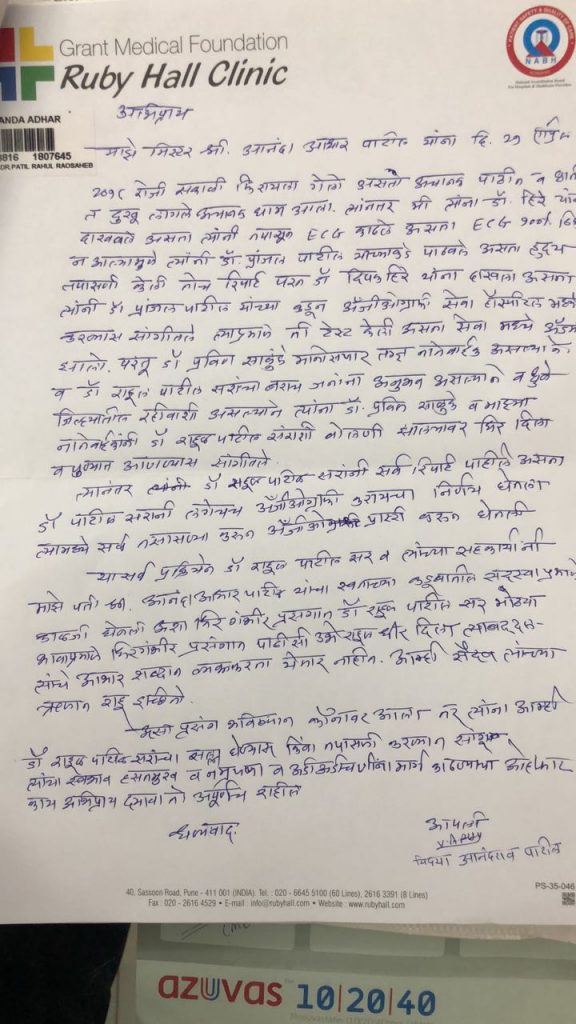 Grant Medical Foundation
Ruby Hall Clinic
NABH
ANDA ADHAR
3816 1807645
DR.PATIL RAHUL RAOSAHEB
अभिप्राय
माझे मिस्टर श्री. आनंदा आधार पाटील यांना दि. २७ एप्रिल
२०१८ रोजी सकाळी फिरायला गेले असता अचानक पाठीत व छाती
त दुखू लागले अचानक घाम आला. त्यानंतर श्री डॉ. हिरे यांना
दाखवले असता त्यांनी तपासून ECG काढले असता ECG
न आल्यामुळे त्यांनी डॉ. प्रांजल पाटील यांच्याकडे पाठवले असता हृदय
तपासणी केली तोच रिपोर्ट परत डॉ दिपक हिरे यांना दाखवला असता
त्यांनी डॉ प्रांजल पाटील यांच्या कडून अँजीओग्राफी सेवा हॉस्पीटल मध्ये
करण्यास सांगीतले त्याप्रमाणे ती टेस्ट केली असता सेवा मध्ये
झाले. परंतू डॉ प्रविण साळुंके नातेवाईक असल्याने
व डॉ राहूल पाटील सरांचा बराच जनांना अनुभव असल्याने व धुळे
जिल्ह्यातील रहीवाशी असल्याने त्यांना डॉ. प्रविण साळुंके व माझ्या
नातेवाईकांनी डॉ राहूल पाटील सरांशी बोलणी झाल्यावर धिर दिला
व पुण्यात आणण्यास सांगीतले.
त्यानंतर डॉ राहूल पाटील सरांनी सर्व रिपोर्ट पाहीले असता
डॉ पाटील सरांनी लगेचच अँजीओग्राफी करायचा निर्णय घेतला
त्यामध्ये सर्व तपासण्या करून अँजीओप्लास्टी करून घेतली
या सर्व प्रक्रियेत डॉ राहूल पाटील सर व त्यांच्या सहकार्यांनी
माझे पती श्री. आनंदा आधार पाटील यांचा स्वतःच्या कुटूंबातील सदस्या प्रमाणे
काळजी घेतली अशा धिरगंभीर प्रसंगात डॉ राहूल पाटील सर मोठ्या
भावाप्रमाणे धिरगंभीर प्रसंगात पाठीशी उभे राहून धीर दिला त्याबद्दल
त्यांचे आभार शब्दात व्यक्त करता येणार नाहीत. आम्ही सदैव त्यांच्या
ऋणात राहू इच्छितो.
असा प्रसंग भविष्यात कोणावर आला तर त्यांना आम्ही
डॉ राहूल पाटील सरांचा सल्ला घेण्यास किंवा तपासणी करण्यास सांगू
त्यांचा स्वभाव हसतमुख व नम्रपणा व अडीअडचणीतून मार्ग काढण्याचा
काय अभिप्राय द्यावा तो अपूर्णच राहील
धन्यवाद.
आपली
विद्या आनंदराव पाटील
PS-35-046
40, Sassoon Road, Pune - 411 001 (INDIA). Tel. : 020 - 6645 5100 (60 Lines), 2616 3391 (8 Lines)
Fax : 020 - 2616 4529 • E-mail : info@rubyhall.com • Website : www.rubyhall.com
azuvas 10|20|40